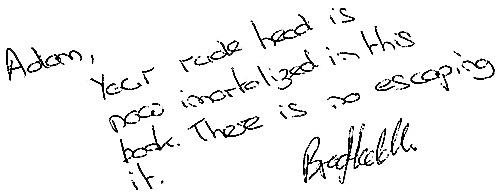 Adam,
Your rude head is
now imortalized in this
book. There is no escaping
it.